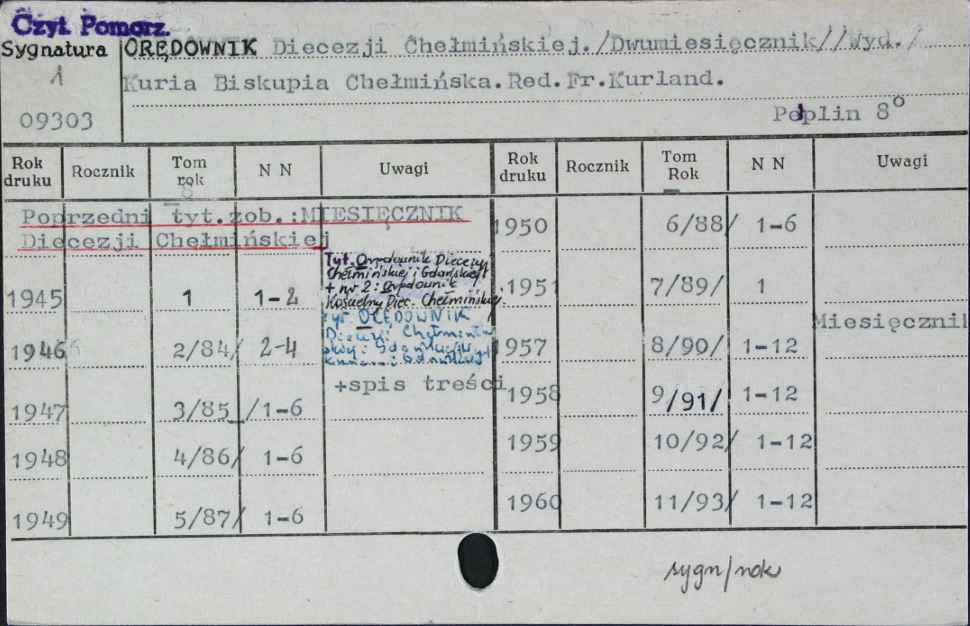 Czyt. Pomorz.
Sygnatura
1
09303
ORĘDOWNIK Diecezji Chełmińskiej./Dwumiesięcznik//Wyd./
Kuria Biskupia Chełmińska.Red.Fr.Kurland.
Peplin 8°
Rok druku Rocznik Tom rok N N Uwagi Rok druku Rocznik Tom Rok N N Uwagi
Poprzedni tyt.zob.:MIESIĘCZNIK
Diecezji Chełmińskiej
1945 1 1-2
Tyt. Orędownik Diecezji
Chełmińskiej i Gdańskiej
+ nr 2: Orędownik
Kościelny Diec. Chełmińskiej
1946 2/84/ 2-4
tyt ORĘDOWNIK
Diecezji
+spis treści
1947 3/85 /1-6
1948 4/86/ 1-6
1949 5/87/ 1-6
1950 6/88/ 1-6
1951 7/89/ 1
Miesięcznik
1957 8/90/ 1-12
1958 9/91/ 1-12
1959 10/92/ 1-12
1960 11/93/ 1-12
sygn/rok